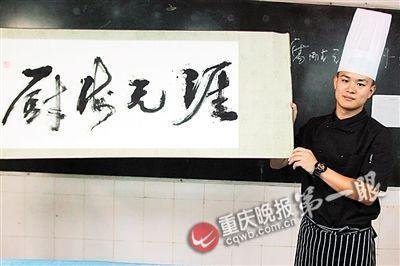 厨海无涯
重庆晚报 第一眼
www.cqwb.com.cn